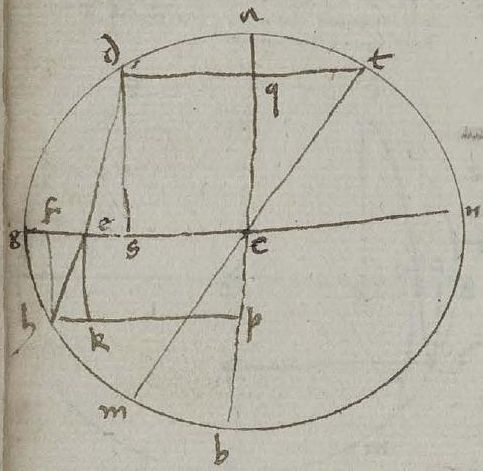 a
d t
q
g f e s c n
h k p
m
b